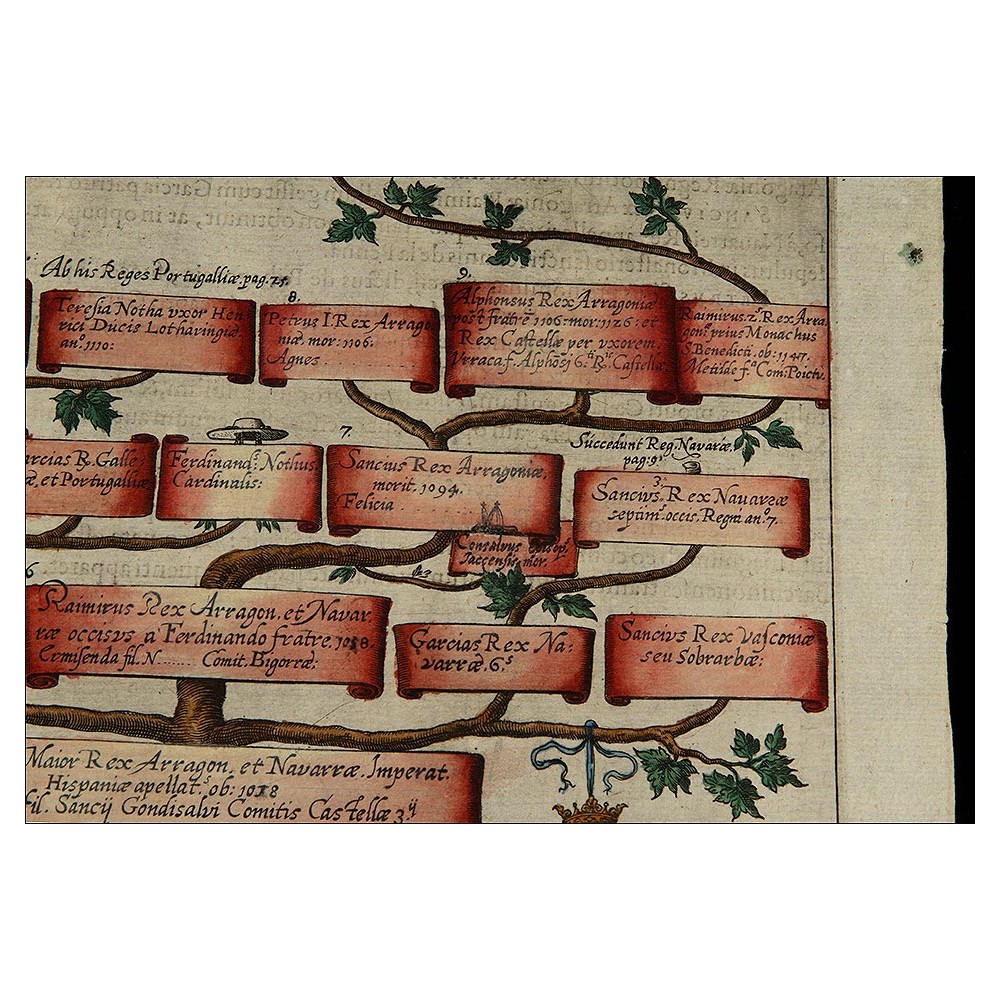 Ab his Reges Portugalliæ. pag. 75.
Teresia Notha vxor Hen
rici Ducis Lotharingiæ
anº. 1110:
8.
Petrus I. Rex Arrago
niæ. mor: 1106.
Agnes
9.
Alphonsus Rex Arragoniæ
post fratrē 1106: mor: 1126: et
Rex Castellæ per vxorem
Vrraca f. Alphōsi 6ti Ris Castellæ
Raimirus. 2s Rex Arra
gonū prius Monachus
S. Benedicti. ob: 1147.
Metilde fa Com: Poictv.
rcias R. Galle:
æ, et Portugalliæ
Ferdinands: Nothus.
Cardinalis:
7.
Sancius Rex Arragoniæ,
morit. 1094.
Felicia
Succedunt Reg. Navaræ.
pag: 9.
3.
Sancivs. Rex Navareæ
septims. occis. Regna anº 7.
Consalvus Episcp9.
Jaccensis. mor.
6
Raimirus Rex Arragon. et Navar
ræ occisvs a Ferdinando fratre. 1058.
Ermisenda fil. N ...... Comit. Bigorræ:
Garcias Rex Na-
varræ. 6s
Sancivs Rex vasconiæ
seu Sobrarbæ:
Maior Rex Arragon. et Navarræ. Imperat.
Hispaniæ apellats. ob: 1018
fil. Sancij Gondisalvi Comitis Castellæ 3ij